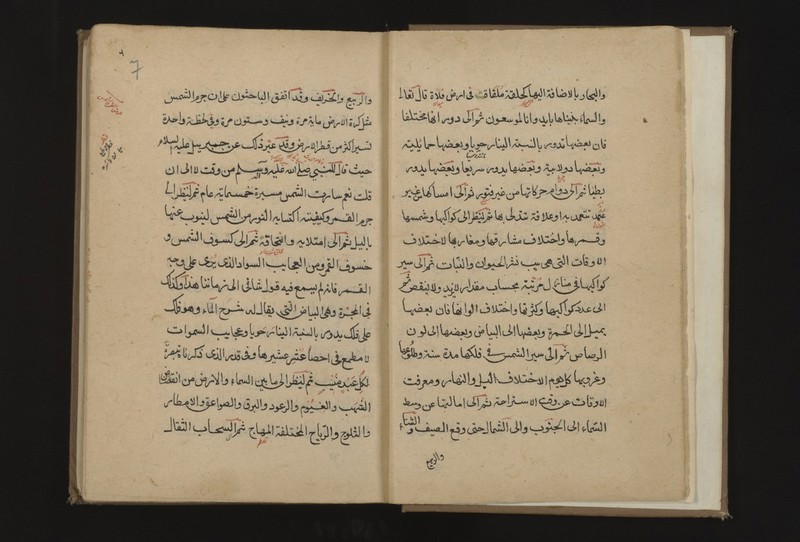 والبحار بالاضافة اليها كحلقة ملقاة في ارض فلاة قال تعالى
والسماء بنيناها بايد وانا لموسعون ثم الى دورانها مختلفا
فان بعضها تدور بالنسبة الينا رحوية وبعضها حمايلية
وبعضها دولابية وبعضها يدور سريعا وبعضها يدور
بطيئا ثم الى دوام حركاتها من غير فتور ثم الى امساكها من غير
عمد تتعمد به او علاقة تتدلى بها ثم لينظر الى كواكبها وشمسها
وقمرها واختلاف مشارقها ومغاربها لاختلاف
الاوقات التي هي سبب نشو الحيوان والنبات ثم الى سير
كواكبها في منازل مرتبة بحساب مقدر لا يزيد ولا ينقص ثم
الى عدد كواكبها وكثرتها واختلاف الوانها فان بعضها
يميل الى الحمرة وبعضها الى البياض وبعضها الى لون
الرصاص ثم الى سير الشمس في فلكها مدة سنة وطلوعها
وغروبها كل يوم لاختلاف الليل والنهار ومعرفة
الاوقات عن وقت الاستراحة ثم الى امالتها عن وسط
السماء الى الجنوب والى الشمال حتى وقع الصيف والشتاء
والربيع
7
والربيع والخريف وقد اتفق الباحثون على ان جرم الشمس
مثل كرة الارض ماية مرة ونيف وستون مرة وفي لحظة واحدة
تسير اكثر من قطر الارض وقد عبر ذلك عن جبريل عليه السلام
حيث قال للنبي صلى الله عليه وسلم من وقت لا الى ان
قلت نعم سارت الشمس مسيرة خمسماية عام ثم لينظر الى
جرم القمر وكيفية اكتسابه النور من الشمس لينوب عنها
بالليل ثم الى امتلايه وانمحاقه ثم الى كسوف الشمس و
خسوف القمر ومن العجايب السواد الذي يرى على وجه
القمر فانه لم يسمع فيه قول شافي الى زماننا هذا وكذلك
في المجرة وهي البياض الذي يقال له شرج السماء وهو فلك
على فلك يدور بالنسبة الينا رحوية وعجايب السموات
لا مطمع في احصاء عشر عشيرها وفي قدر الذي ذكرناه تبصرة
لكل عبد منيب ثم لينظر الى ما بين السماء والارض من انقضاض
الشهب والغيوم والرعود والبرق والصواعق والامطار
والثلوج والرياح المختلفة المهاب ثم السحاب الثقال